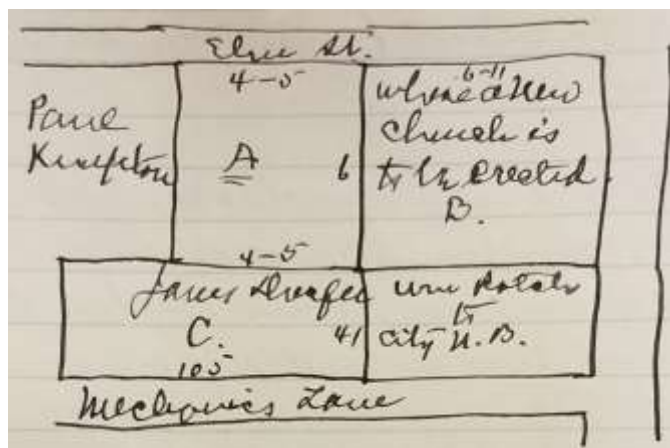 Elm St.
4-5
6-11
Paul
Kempton
A
6
where a New
church is
to be erected
B.
4-5
James Draper
C.
41
105
Wm Rotch
to
City N.B.
Mechanics Lane